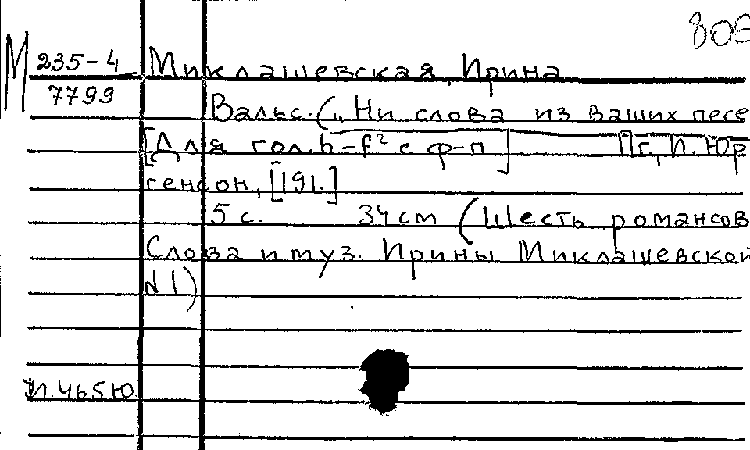 809
М 235-4 Миклашевская, Ирина
7799
Вальс. („Ни слова из ваших песе
[Для гол. h-f² с ф-п] Пг, И. Юр
генсон, [191.]
5 с. 34 см (Шесть романсов
Слова и муз. Ирины Миклашевской
№1)
И.465Ю